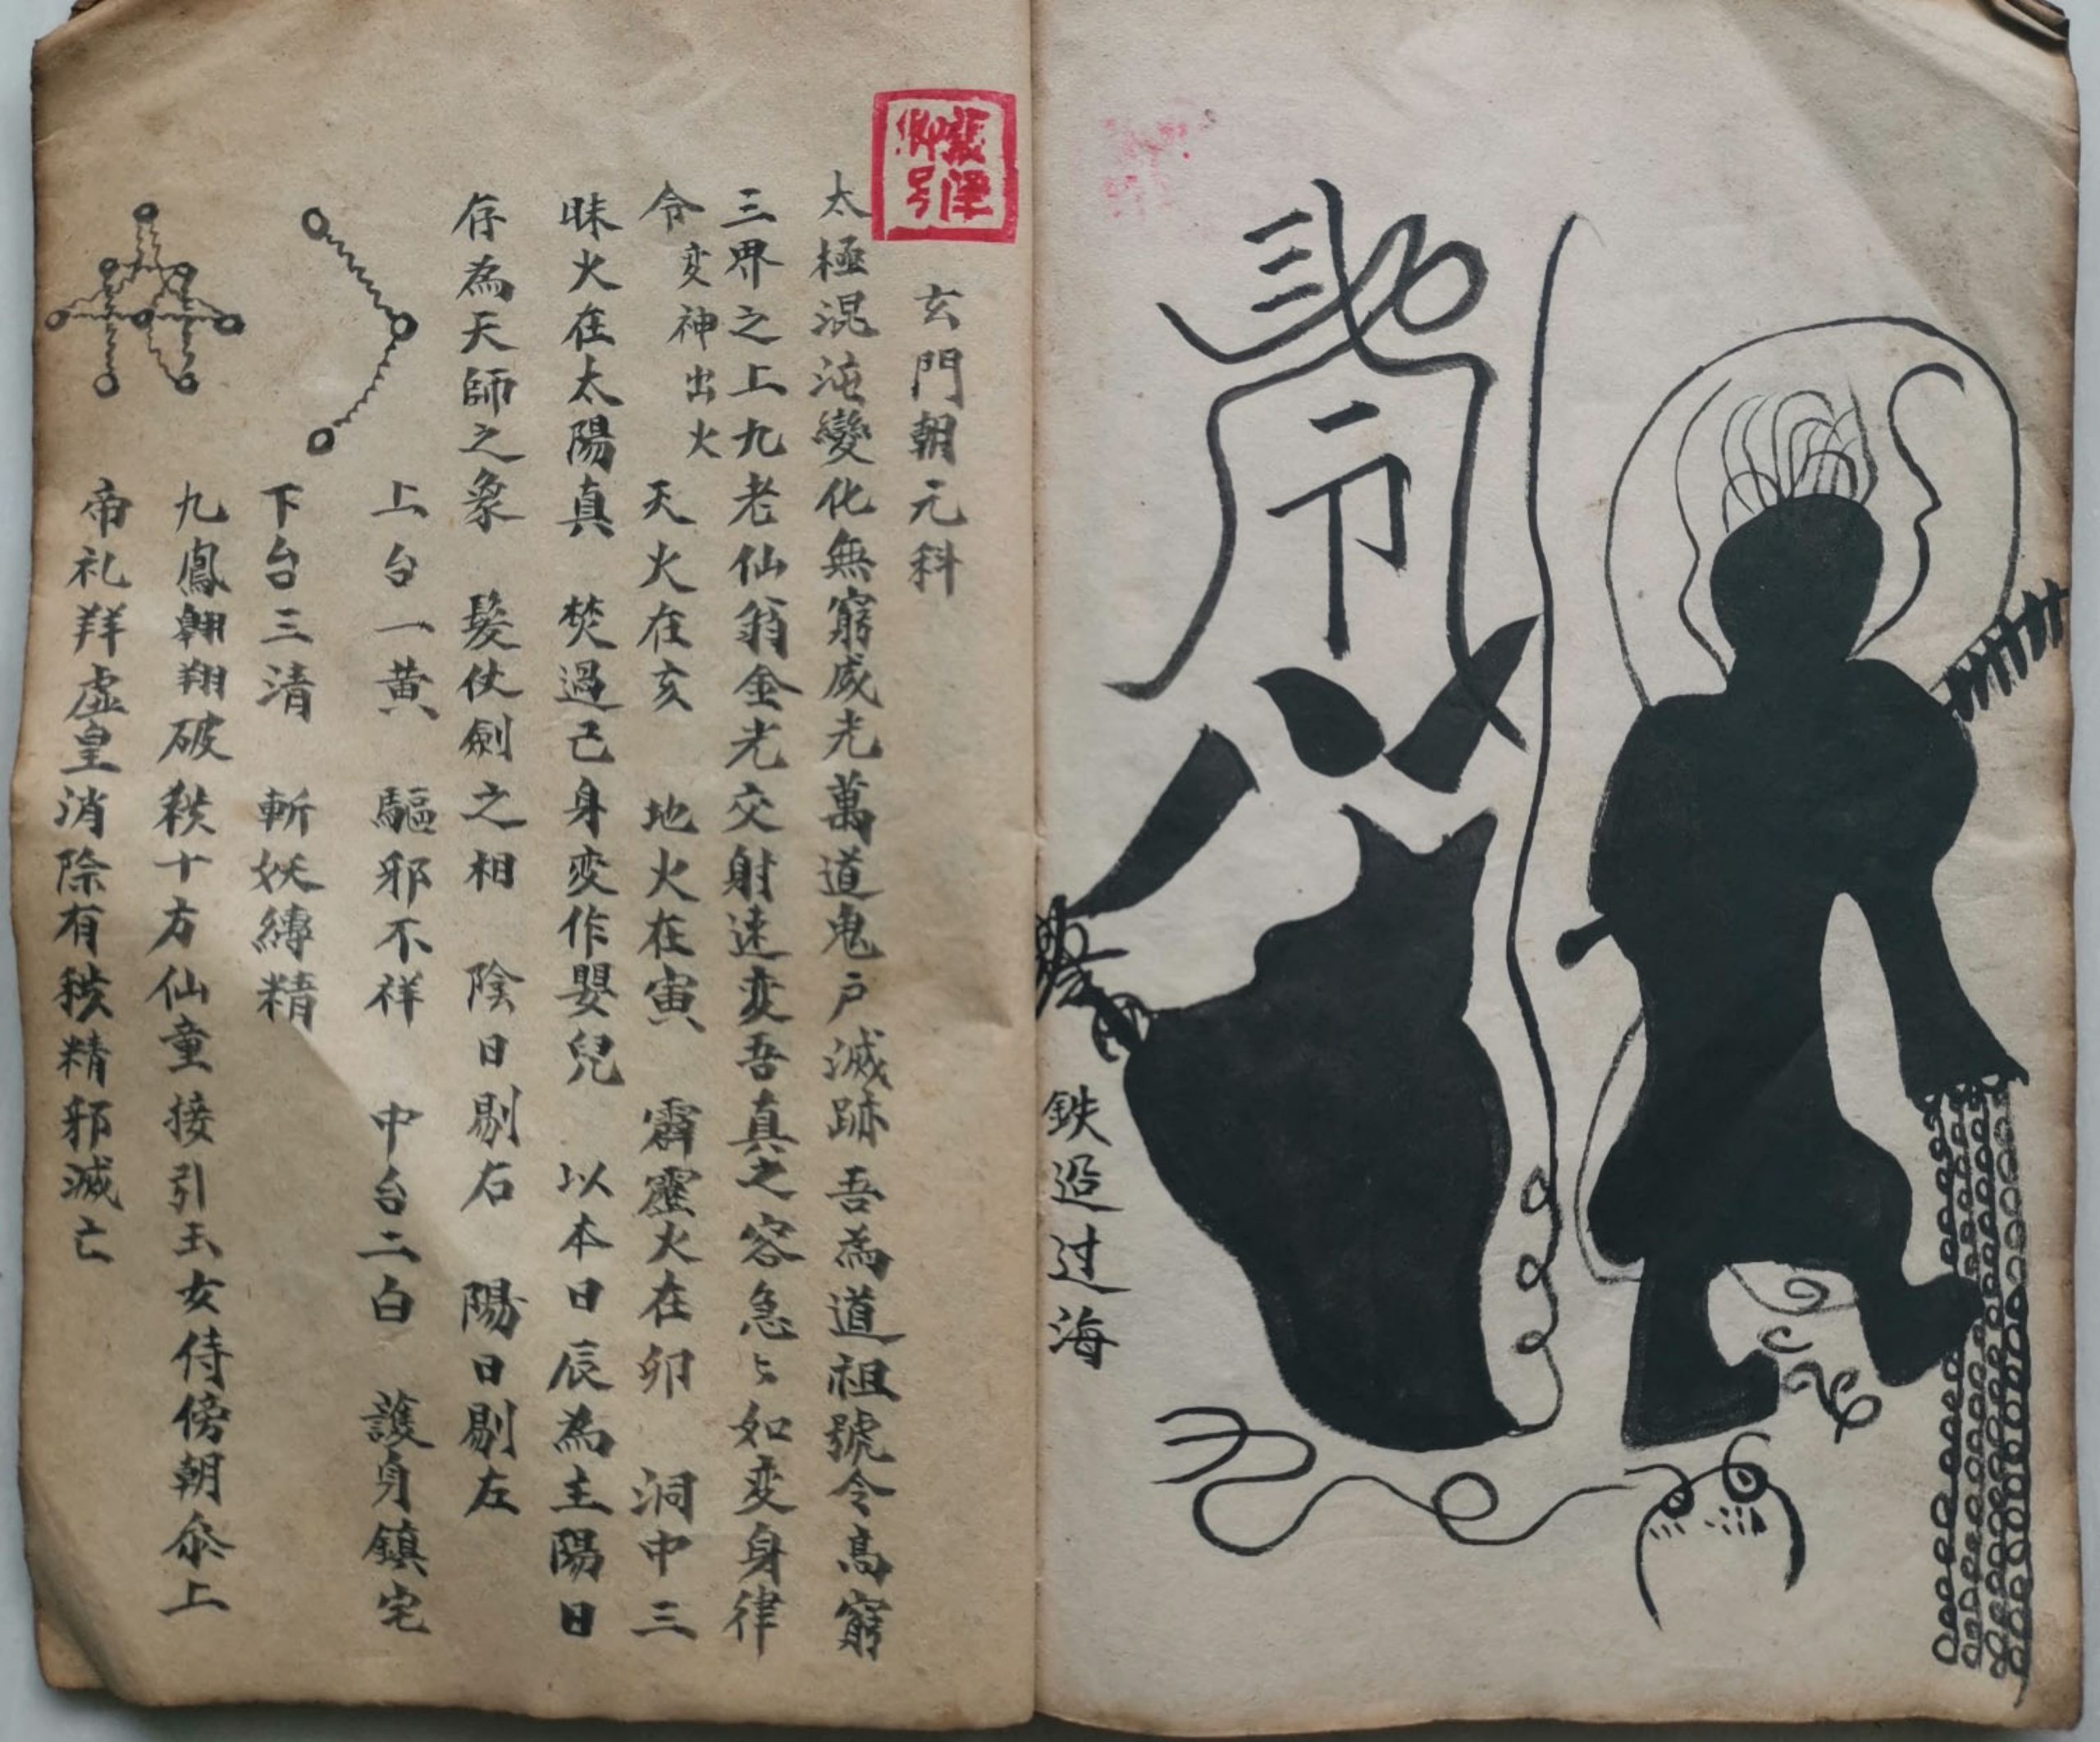 令
鉄迢过海
玄門朝元科
太極混沌變化無窮威光萬道鬼戶滅跡吾為道祖號令高窮
三界之上九老仙翁金光交射速変吾真之容急〻如変身律
令
変神出火
天火在亥 地火在寅 霹靂火在卯 洞中三
昧火在太陽真 焚過己身変作嬰兒 以本日辰為主陽日
存為天師之象 髮仗劍之相 陰日剔右 陽日剔左
上台一黄 驅邪不祥 中台二白 護身鎮宅
下台三清 斬妖縛精
九鳳翱翔破秽十方仙童接引玉女侍傍朝叅上
帝礼拜虛皇消除有秽精邪滅亡